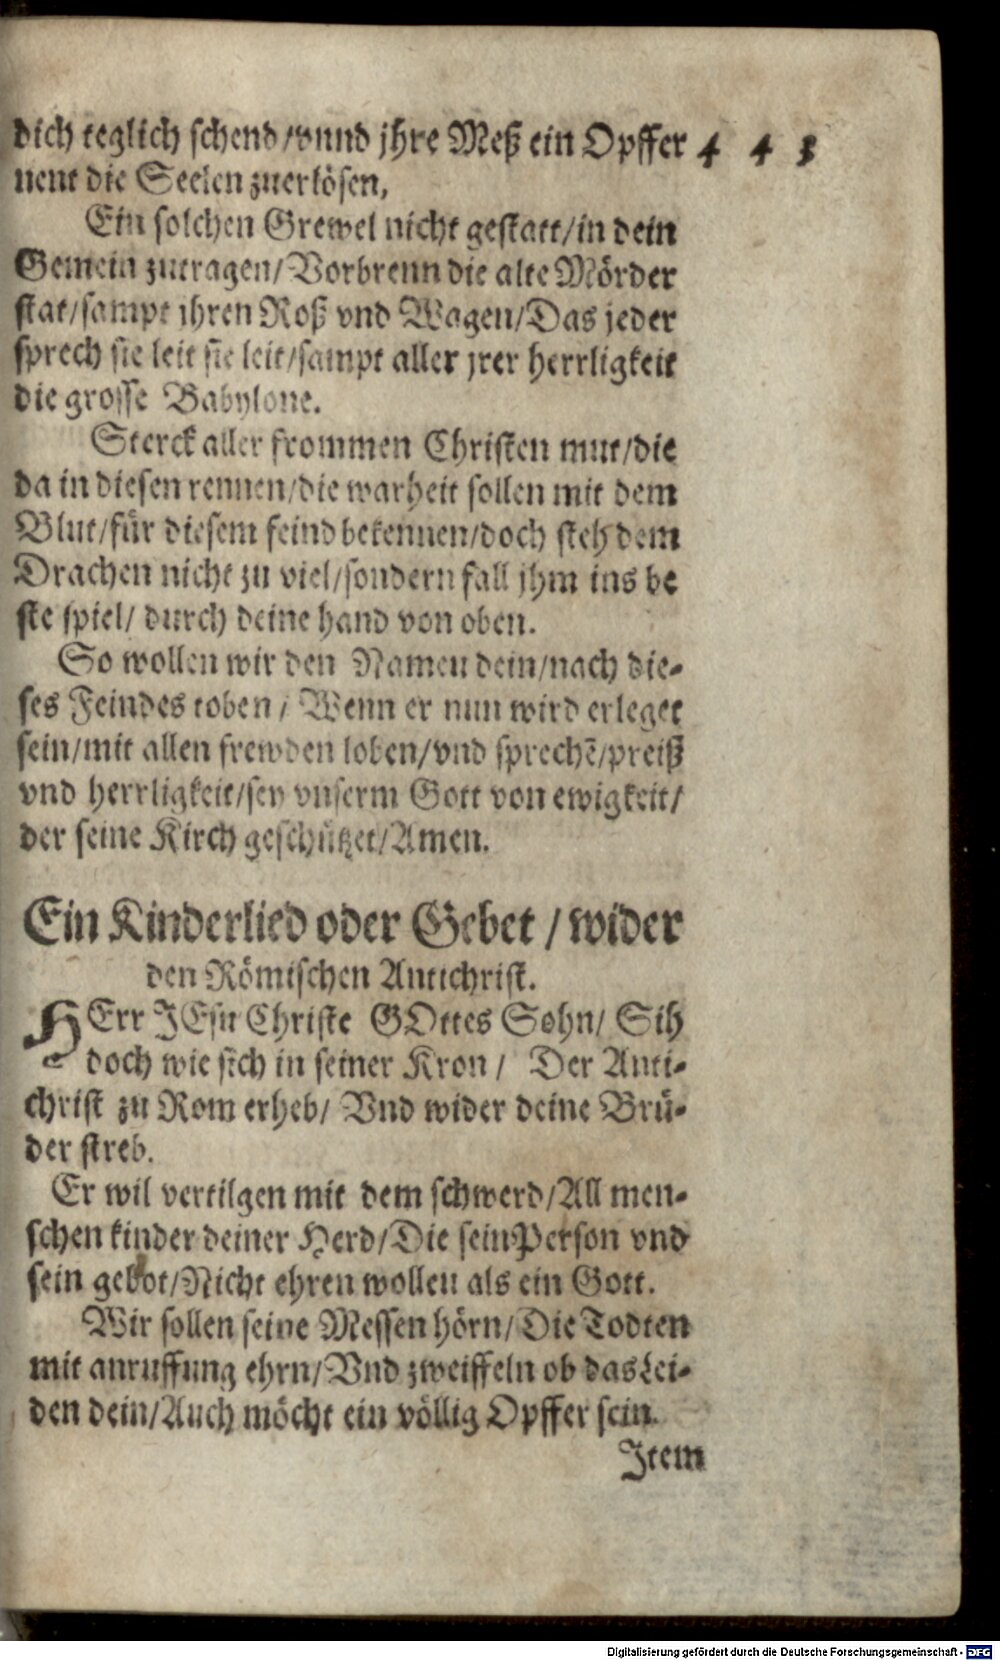 dich teglich schend/vnnd jhre Meß ein Opffer 4 4 3
nent die Seelen zuerlösen,
Ein solchen Grewel nicht gestatt/in dein
Gemein zutragen/Vorbrenn die alte Mörder
stat/sampt jhren Roß vnd Wagen/Das jeder
sprech sie leit sie leit/sampt aller jrer herrligkeit
die grosse Babylone.
Sterck aller frommen Christen mut/die
da in diesen rennen/die warheit sollen mit dem
Blut/für diesem feind bekennen/doch steh dem
Drachen nicht zu viel/sondern fall jhm ins be
ste spiel/ durch deine hand von oben.
So wollen wir den Namen dein/nach die-
ses Feindes toben/ Wenn er nun wird erleget
sein/mit allen frewden loben/vnd sprechē/preiß
vnd herrligkeit/sey vnserm Gott von ewigkeit/
der seine Kirch geschützet/Amen.
Ein Kinderlied oder Gebet / wider
den Römischen Antichrist.
HErr JEsu Christe GOttes Sohn/ Sih
doch wie sich in seiner Kron/ Der Anti-
christ zu Rom erheb/ Vnd wider deine Brü-
der streb.
Er wil vertilgen mit dem schwerd/All men-
schen kinder deiner Herd/Die sein Person vnd
sein gebot/Nicht ehren wollen als ein Gott.
Wir sollen seine Messen hörn/Die Todten
mit anruffung ehrn/Vnd zweiffeln ob das Lei-
den dein/Auch möcht ein völlig Opffer sein.
Item
Digitalisierung gefördert durch die Deutsche Forschungsgemeinschaft - DFG